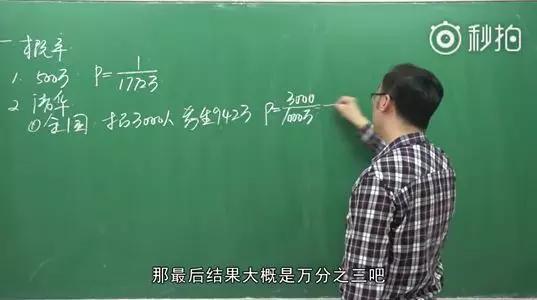 秒拍
一 求概率
1. 500万 P=1/1772万
2 清华
①全国 招3000人 考生942万 P=3000/1000万=
那最后结果大概是万分之三吧